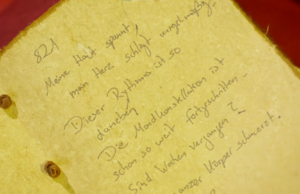 821
Meine Haut spannt,
mein Herz schlägt unregelmäßig.
Dieser Rythmus ist so
daneben
Die Mondkonstellation ist
schon so weit fortgeschritten.
Sind Wochen vergangen?
ganzer Körper schmerzt.